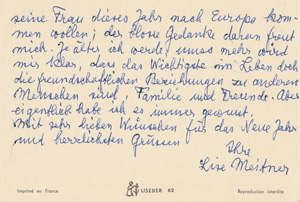 seine Frau dieses Jahr nach Europa kom-
men wollen; der blosse Gedanke daran freut
mich. Je älter ich werde, umso mehr wird
mir klar, dass das Wichtigste im Leben doch
die freundschaftlichen Beziehungen zu anderen
Menschen sind, Familie und Freunde. Aber
eigentlich habe ich es immer gewusst.
Mit sehr lieben Wünschen für das Neue Jahr
und herzlichsten Grüssen
Ihre
Lise Meitner
Imprimé en France
LISEBER 62
Reproduction interdite